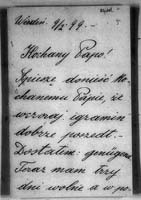 Wiedeń 9/X 99. -
Kochany Papo!
Spieszę donieść Ko-
chanemu Papie, że
wczoraj egzamin
dobrze poszedł. -
Dostałem: genügend.
Teraz mam trzy
dni wolne a w po-